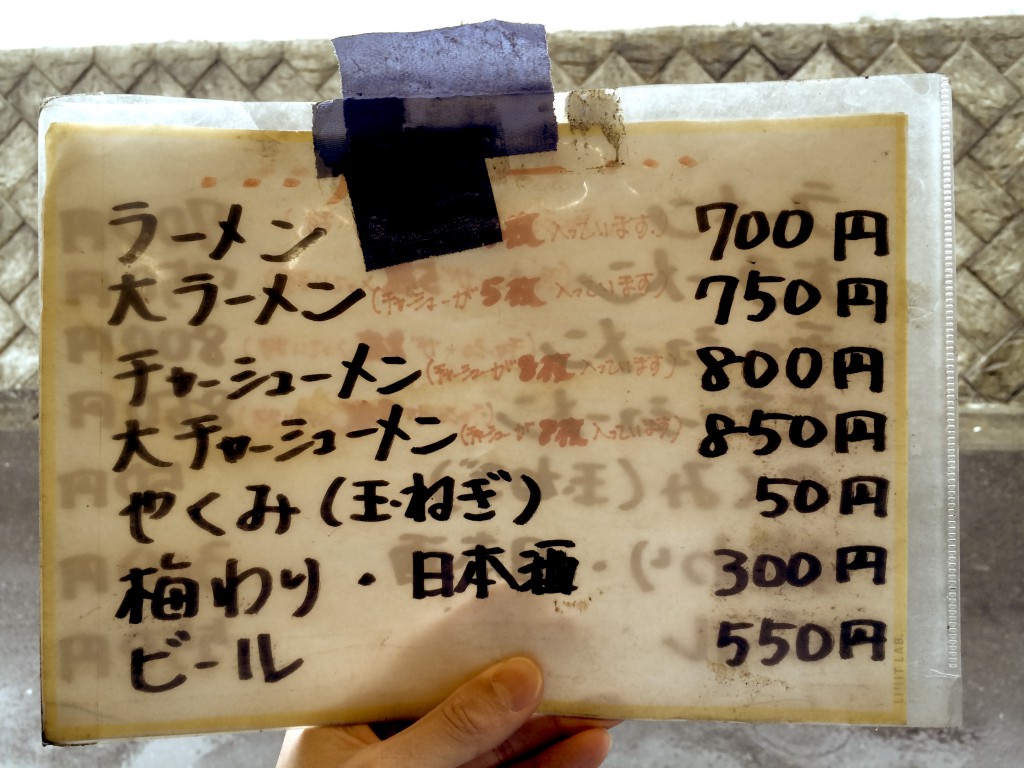 ラーメン 枚入っています。 700円
大ラーメン(チャーシューが5枚入っています) 750円
チャーシューメン(チャーシューが8枚入っています) 800円
大チャーシューメン(チャーシューが8枚入っています) 850円
やくみ(玉ねぎ) 50円
梅わり・日本酒 300円
ビール 550円
LIHIT LAB.